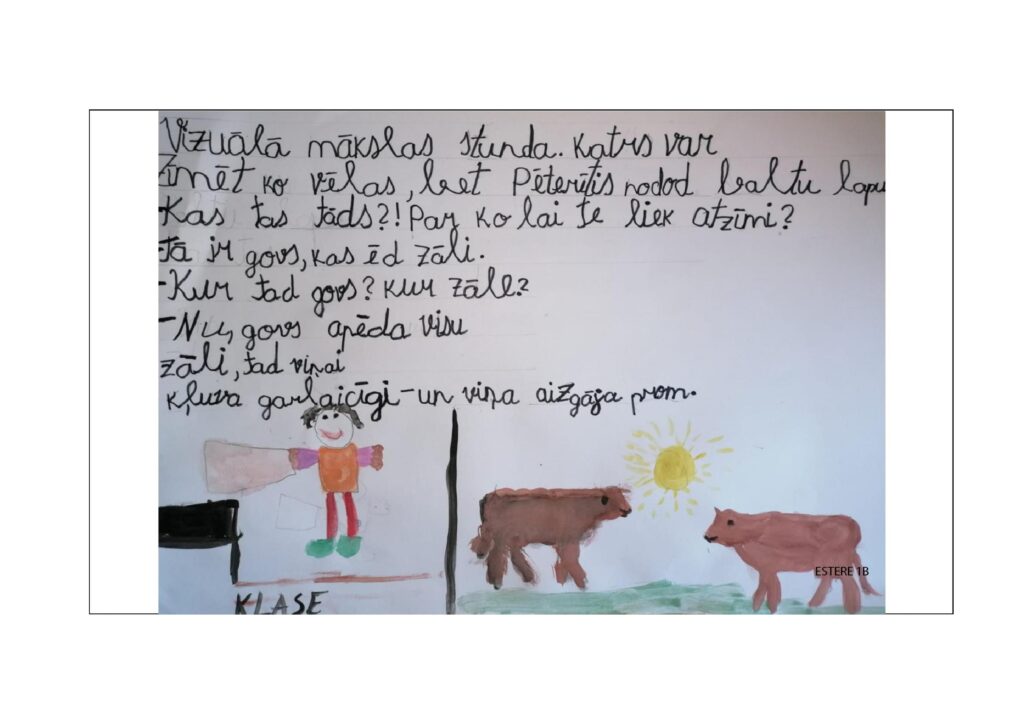 Vizuālā mākslas stunda. Katrs var
zīmēt ko vēlas, bet Pēterītis nodod baltu lapu
-Kas tas tāds?! Par ko lai te liek atzīmi?
-Tā ir govs, kas ēd zāli.
-Kur tad govs? Kur zāle?
-Nu, govs apēda visu
zāli, tad viņai
kļuva garlaicīgi-un viņa aizgāja prom.
ESTERE 1B
KLASE